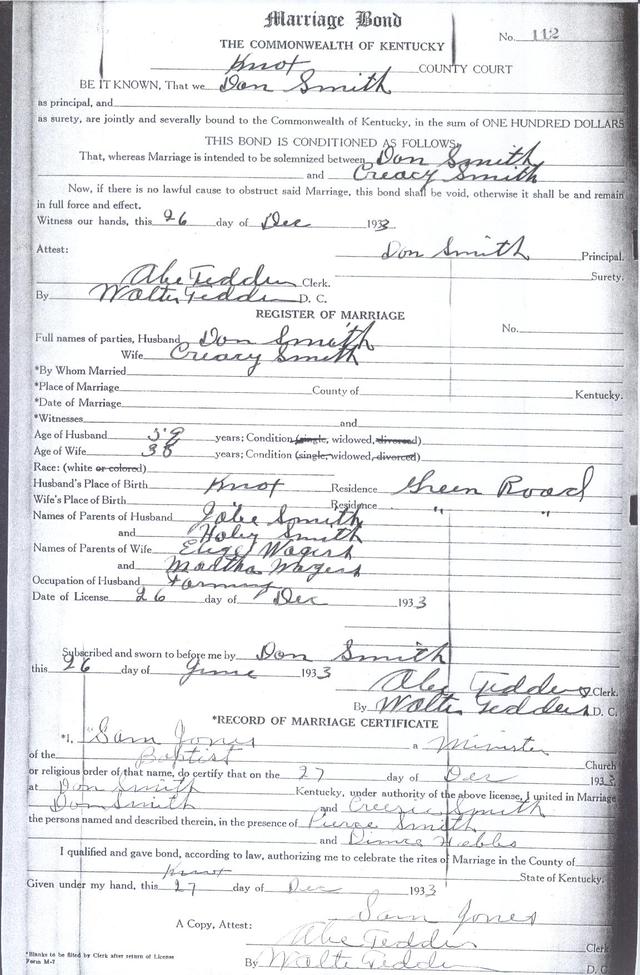 Marriage Bond
No. 112
THE COMMONWEALTH OF KENTUCKY
Knox COUNTY COURT
BE IT KNOWN, That we Don Smith
as principal, and
as surety, are jointly and severally bound to the Commonwealth of Kentucky, in the sum of ONE HUNDRED DOLLARS
THIS BOND IS CONDITIONED AS FOLLOWS:
That, whereas Marriage is intended to be solemnized between Don Smith
and Creacy Smith
Now, if there is no lawful cause to obstruct said Marriage, this bond shall be void, otherwise it shall be and remain
in full force and effect.
Witness our hands, this 26 day of Dec 1933
Don Smith Principal.
Attest:
Surety.
Abe Tedders Clerk.
By Walter Tedders D. C.
REGISTER OF MARRIAGE
No.
Full names of parties, Husband Don Smith
Wife Creacy Smith
*By Whom Married
*Place of Marriage County of Kentucky.
*Date of Marriage
*Witnesses and
Age of Husband 59 years; Condition (single, widowed, divorced)
Age of Wife 38 years; Condition (single, widowed, divorced)
Race: (white or colored)
Husband's Place of Birth Knox Residence Green Road
Wife's Place of Birth Residence " "
Names of Parents of Husband Smith
and Smith
Names of Parents of Wife Wagers
and Martha Wagers
Occupation of Husband Farming
Date of License 26 day of Dec 1933
Subscribed and sworn to before me by Don Smith
this 26 day of June 1933
Abe Tedders Clerk.
By Walter Tedders D. C.
*RECORD OF MARRIAGE CERTIFICATE
*I, Sam Jones a Minister
of the Baptist Church
or religious order of that name, do certify that on the 27 day of Dec 1933
at Don Smith Kentucky, under authority of the above license, I united in Marriage
Don Smith and Creezie Smith
the persons named and described therein, in the presence of Pierce Smith
and Hobbs
I qualified and gave bond, according to law, authorizing me to celebrate the rites of Marriage in the County of
Knox State of Kentucky.
Given under my hand, this 27 day of Dec 1933
Sam Jones
A Copy, Attest: Abe Tedders Clerk
*Blanks to be filled by Clerk after return of License
Form M-7
By Walter Tedders D. C.